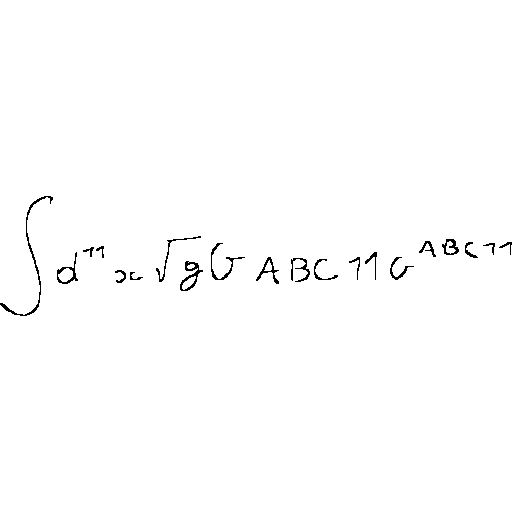 \int d^{11} x \sqrt{g} G_{ABC11} G^{ABC11}